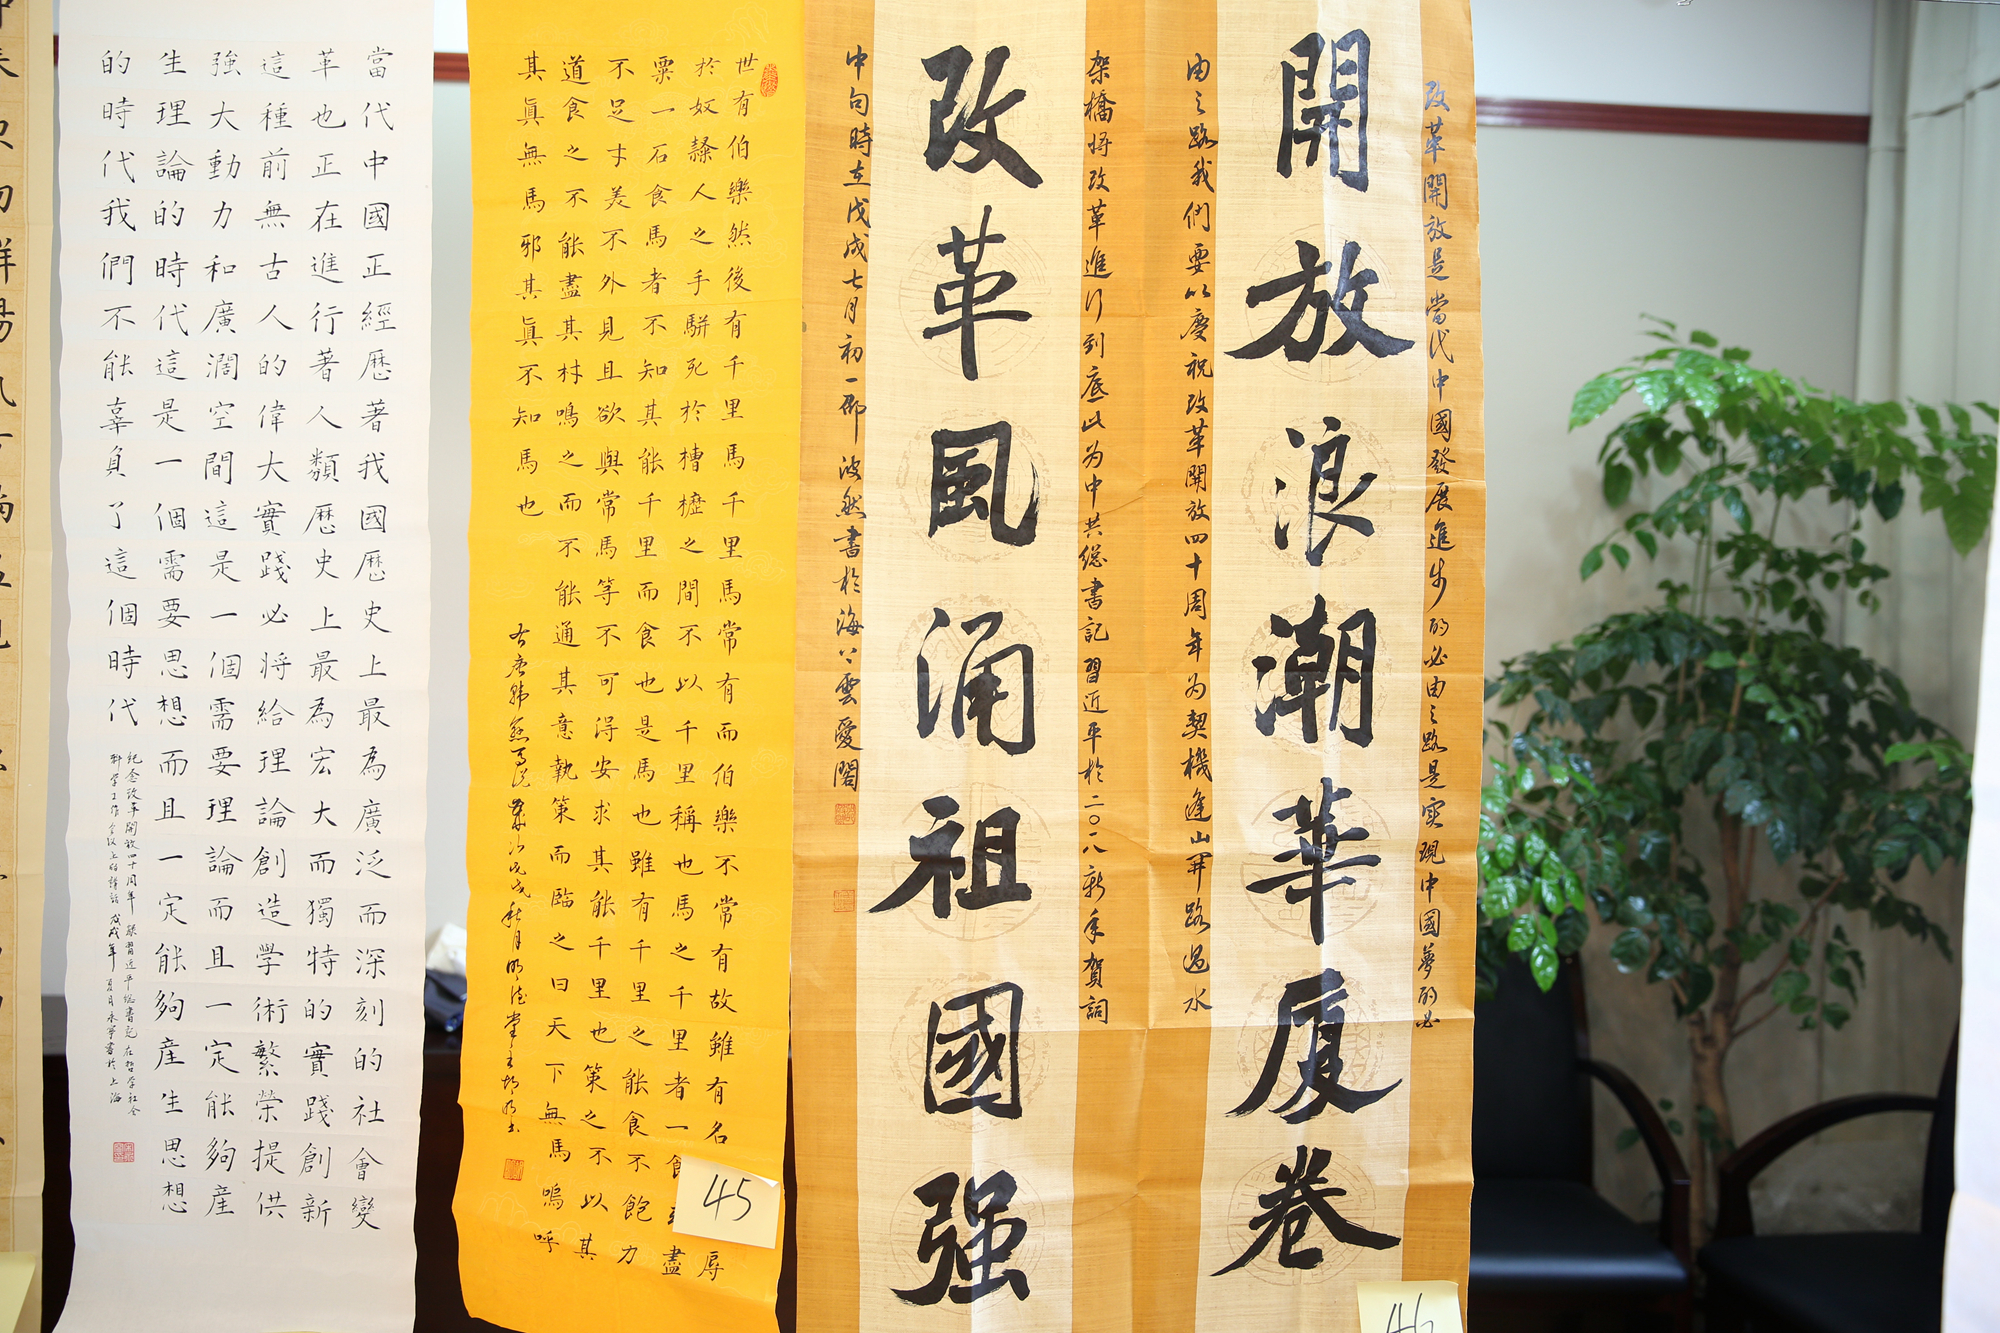 改革開放是當代中國發展進步的必由之路是实現中國夢的必
開放浪潮華厦卷
由之路我們要以慶祝改革開放四十周年为契機逢山開路遇水
架橋將改革進行到底此为中共總書記習近平於二〇一八新年賀詞
改革風涌祖國强
中句時在戊戌七月初一邵波然書於海上雲愛閣
46
世有伯樂然後有千里馬千里馬常有而伯樂不常有故雖有名辱
於奴隸人之手駢死於槽櫪之間不以千里稱也馬之千里者一食盡
粟一石食馬者不知其能千里而食也是馬也雖有千里之能食不飽力
不足才美不外見且欲與常馬等不可得安求其能千里也策之不以其
道食之不能盡其材鳴之而不能通其意執策而臨之曰天下無馬嗚呼
其眞無馬邪其眞不知馬也
右唐韓愈馬説
45
當代中國正經歷著我國歷史上最為廣泛而深刻的社會變
革也正在進行著人類歷史上最為宏大而獨特的實踐創新
這種前無古人的偉大實踐必將給理論創造學術繁榮提供
強大動力和廣濶空間這是一個需要理論而且一定能夠産
生理論的時代這是一個需要思想而且一定能夠産生思想
的時代我們不能辜負了這個時代
紀念改革開放四十周年 録習近平總書記在哲学社会
科学工作会议上的講話 戊戌年夏月永寧書於上海